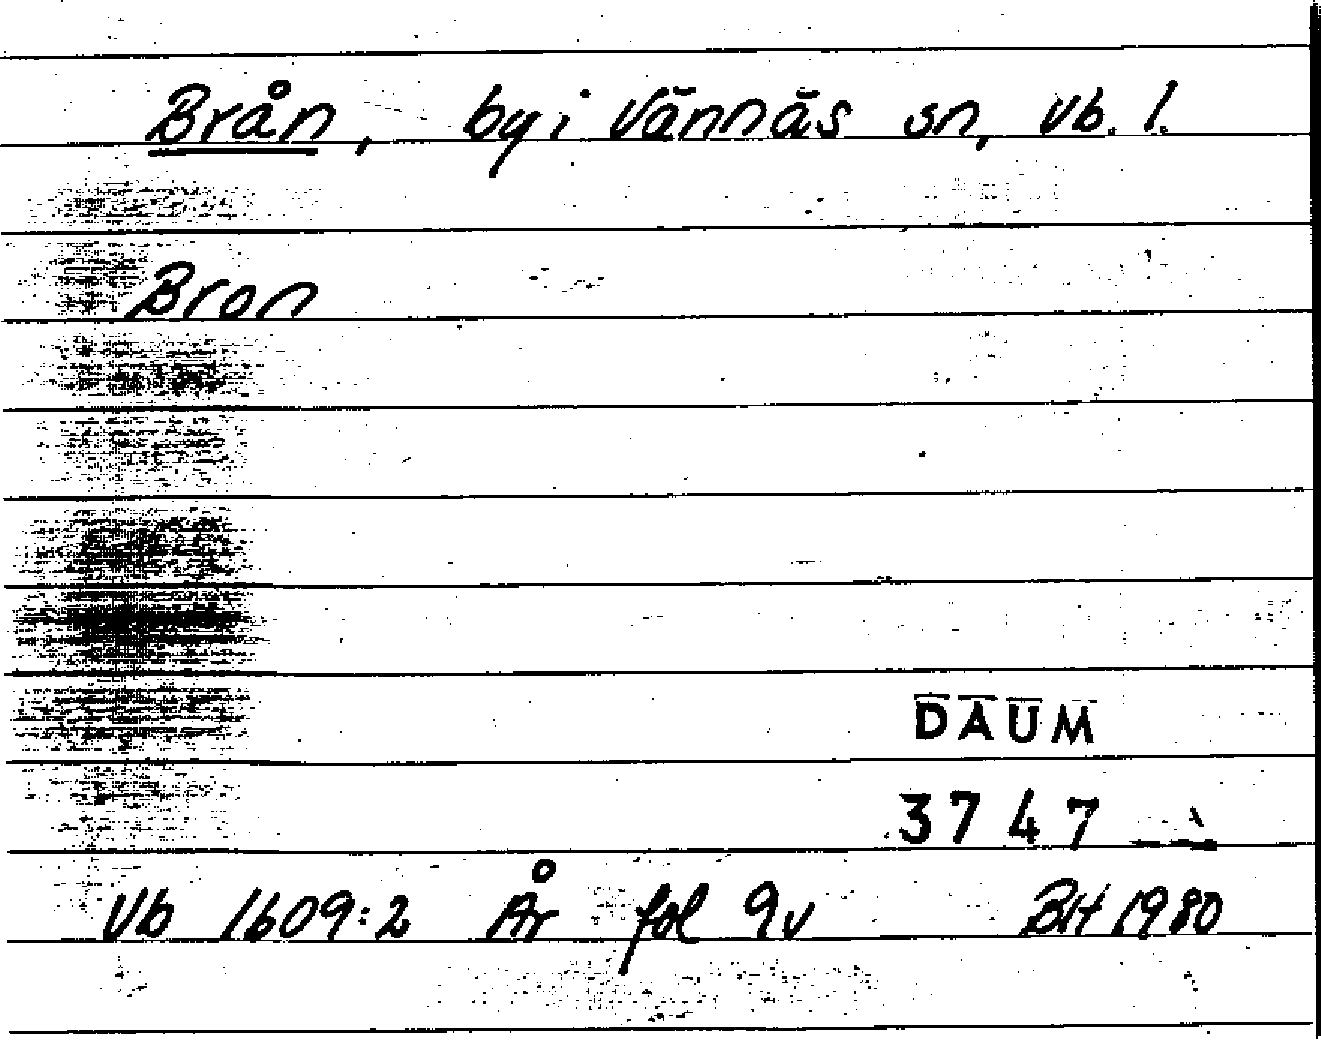 Brån, by i Vännäs sn, Vb. l.
Bron
DAUM
3747
Vb 1609:2 År fol 9v BH 1980